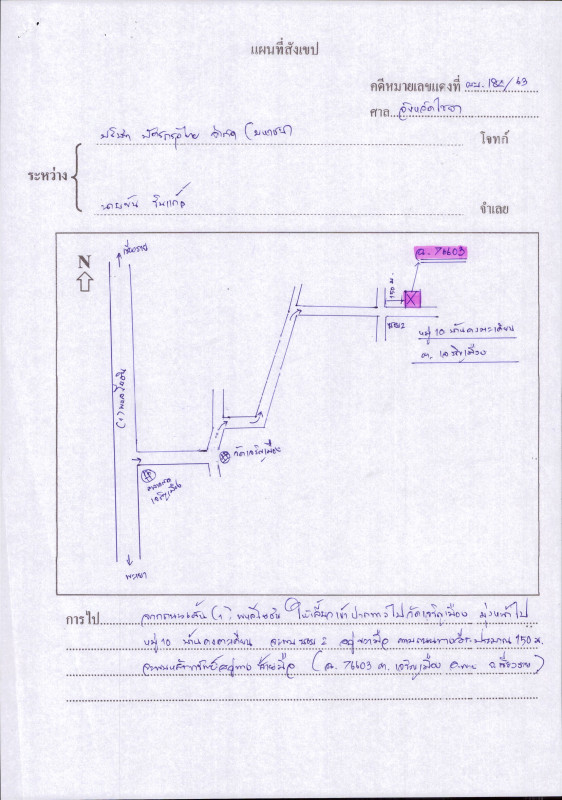 แผนที่สังเขป
คดีหมายเลขแดงที่ ผบ. 182/63
ศาล จังหวัดเชียงราย
บริษัท จำกัด (มหาชน)
โจทก์
ระหว่าง
นาย
จำเลย
N
เชียงราย
ฉ. 76603
150 ม.
ซอย 2
หมู่ 10 บ้านดงตะเคียน
ต. เจริญเมือง
(1) พหลโยธิน
วัดเจริญเมือง
เจริญเมือง
พะเยา
การไป จากถนนเส้น (1) พหลโยธิน ให้เลี้ยวเข้าปากทางไปวัดเจริญเมือง มุ่งหน้าไป
หมู่ 10 บ้านดงตะเคียน จะพบซอย 2 อยู่ซ้ายมือ ประมาณ 150 ม.
จะพบหลักทรัพย์อยู่ทางซ้ายมือ (ฉ. 76603 ต. เจริญเมือง อ.พาน จ.เชียงราย)